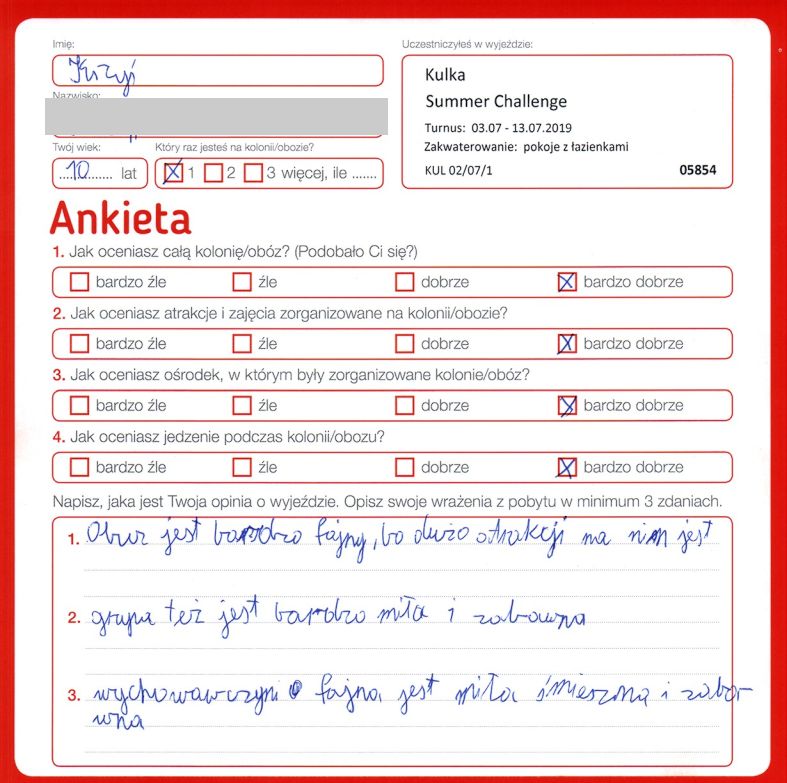 Imię:
Uczestniczyłeś w wyjeździe:
Nazwisko:
Kulka
Summer Challenge
Turnus: 03.07 - 13.07.2019
Zakwaterowanie: pokoje z łazienkami
KUL 02/07/1 05854
Twój wiek:
Który raz jesteś na kolonii/obozie?
10 lat
1 2 3 więcej, ile .......
Ankieta
1. Jak oceniasz całą kolonię/obóz? (Podobało Ci się?)
bardzo źle źle dobrze bardzo dobrze
2. Jak oceniasz atrakcje i zajęcia zorganizowane na kolonii/obozie?
bardzo źle źle dobrze bardzo dobrze
3. Jak oceniasz ośrodek, w którym były zorganizowane kolonie/obóz?
bardzo źle źle dobrze bardzo dobrze
4. Jak oceniasz jedzenie podczas kolonii/obozu?
bardzo źle źle dobrze bardzo dobrze
Napisz, jaka jest Twoja opinia o wyjeździe. Opisz swoje wrażenia z pobytu w minimum 3 zdaniach.
1. Obuz jest bardzo fajny, bo dużo atrakcji na nim jest
2. grupa też jest bardzo miła i zabawna
3. wychowawczyni fajna jest miła śmieszna i zaba
wna